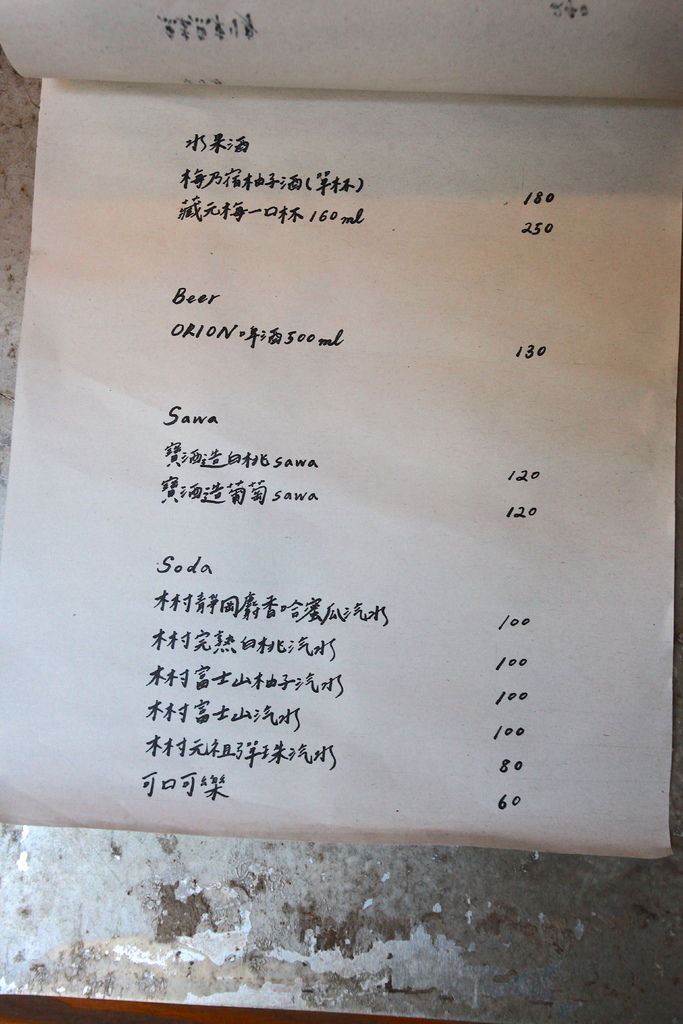 水果酒
梅乃宿柚子酒(單杯) 180
藏元梅一口杯160ml 250
Beer
ORION啤酒500ml 130
Sawa
寶酒造白桃sawa 120
寶酒造葡萄sawa 120
Soda
木村靜岡麝香哈蜜瓜汽水 100
木村完熟白桃汽水 100
木村富士山柚子汽水 100
木村富士山汽水 100
木村元祖彈珠汽水 80
可口可樂 60